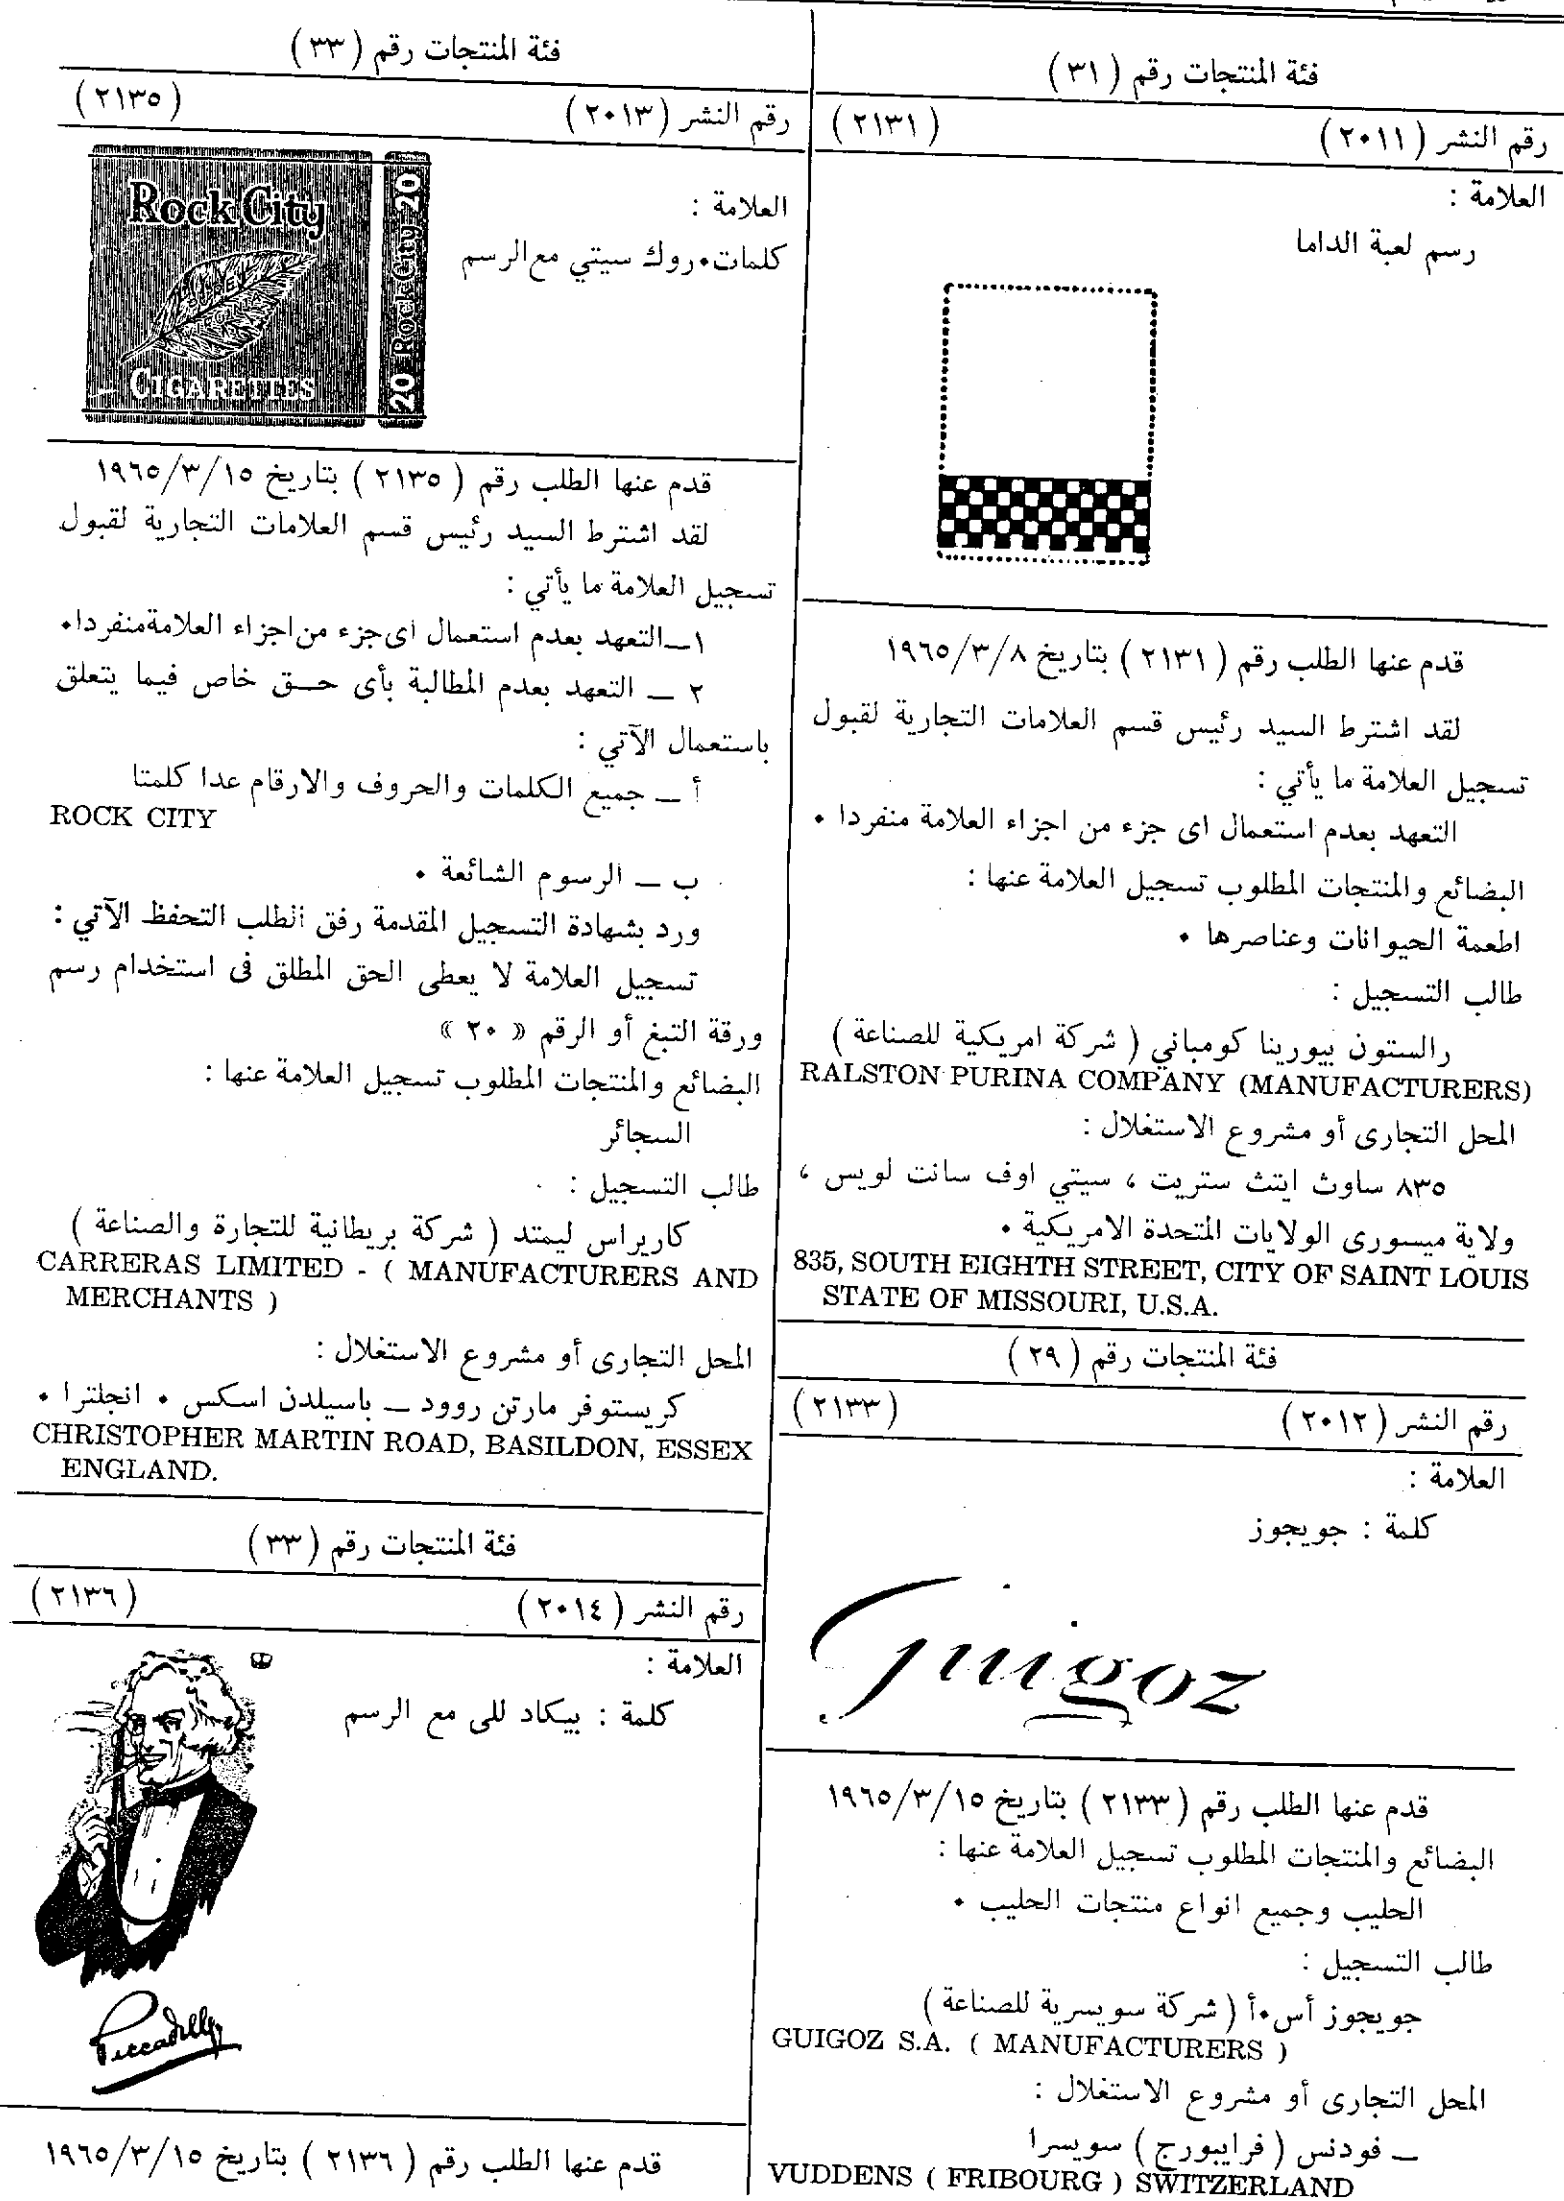 فئة المنتجات رقم ( ٣١ )
رقم النشر ( ٢٠١١ ) ( ٢١٣١ )
العلامة :
رسم لعبة الداما
قدم عنها الطلب رقم ( ٢١٣١ ) بتاريخ ١٩٦٥/٣/٨
لقد اشترط السيد رئيس قسم العلامات التجارية لقبول
تسجيل العلامة ما يأتي :
التعهد بعدم استعمال اى جزء من اجزاء العلامة منفردا ٠
البضائع والمنتجات المطلوب تسجيل العلامة عنها :
اطعمة الحيوانات وعناصرها ٠
طالب التسجيل :
رالستون بيورينا كومباني ( شركة امريكية للصناعة )
RALSTON PURINA COMPANY (MANUFACTURERS)
المحل التجارى أو مشروع الاستغلال :
٨٣٥ ساوث ايتث ستريت ، سيتي اوف سانت لويس ،
ولاية ميسورى الولايات المتحدة الامريكية ٠
835, SOUTH EIGHTH STREET, CITY OF SAINT LOUIS
STATE OF MISSOURI, U.S.A.
فئة المنتجات رقم ( ٢٩ )
رقم النشر ( ٢٠١٢ ) ( ٢١٣٣ )
العلامة :
كلمة : جويجوز
Guigoz
قدم عنها الطلب رقم ( ٢١٣٣ ) بتاريخ ١٩٦٥/٣/١٥
البضائع والمنتجات المطلوب تسجيل العلامة عنها :
الحليب وجميع انواع منتجات الحليب ٠
طالب التسجيل :
جويجوز أس٠أ ( شركة سويسرية للصناعة )
GUIGOZ S.A. ( MANUFACTURERS )
المحل التجارى أو مشروع الاستغلال :
ــ فودنس ( فرايبورج ) سويسرا
VUDDENS ( FRIBOURG ) SWITZERLAND
فئة المنتجات رقم ( ٣٣ )
رقم النشر ( ٢٠١٣ ) ( ٢١٣٥ )
العلامة :
كلمات٠روك سيتي مع الرسم
Rock City
CIGARETTES
20 Rock City 20
قدم عنها الطلب رقم ( ٢١٣٥ ) بتاريخ ١٩٦٥/٣/١٥
لقد اشترط السيد رئيس قسم العلامات التجارية لقبول
تسجيل العلامة ما يأتي :
١ــ التعهد بعدم استعمال اى جزء من اجزاء العلامة منفردا٠
٢ ــ التعهد بعدم المطالبة بأى حـــق خاص فيما يتعلق
باستعمال الآتي :
أ ــ جميع الكلمات والحروف والارقام عدا كلمتا
ROCK CITY
ب ــ الرسوم الشائعة ٠
ورد بشهادة التسجيل المقدمة رفق الطلب التحفظ الآتي :
تسجيل العلامة لا يعطى الحق المطلق فى استخدام رسم
ورقة التبغ أو الرقم « ٢٠ »
البضائع والمنتجات المطلوب تسجيل العلامة عنها :
السجائر
طالب التسجيل :
كاريراس ليمتد ( شركة بريطانية للتجارة والصناعة )
CARRERAS LIMITED - ( MANUFACTURERS AND
MERCHANTS )
المحل التجارى أو مشروع الاستغلال :
كريستوفر مارتن روود ــ باسيلدن اسكس ٠ انجلترا ٠
CHRISTOPHER MARTIN ROAD, BASILDON, ESSEX
ENGLAND.
فئة المنتجات رقم ( ٣٣ )
رقم النشر ( ٢٠١٤ ) ( ٢١٣٦ )
العلامة :
كلمة : بيكاد للى مع الرسم
Piccadilly
قدم عنها الطلب رقم ( ٢١٣٦ ) بتاريخ ١٩٦٥/٣/١٥